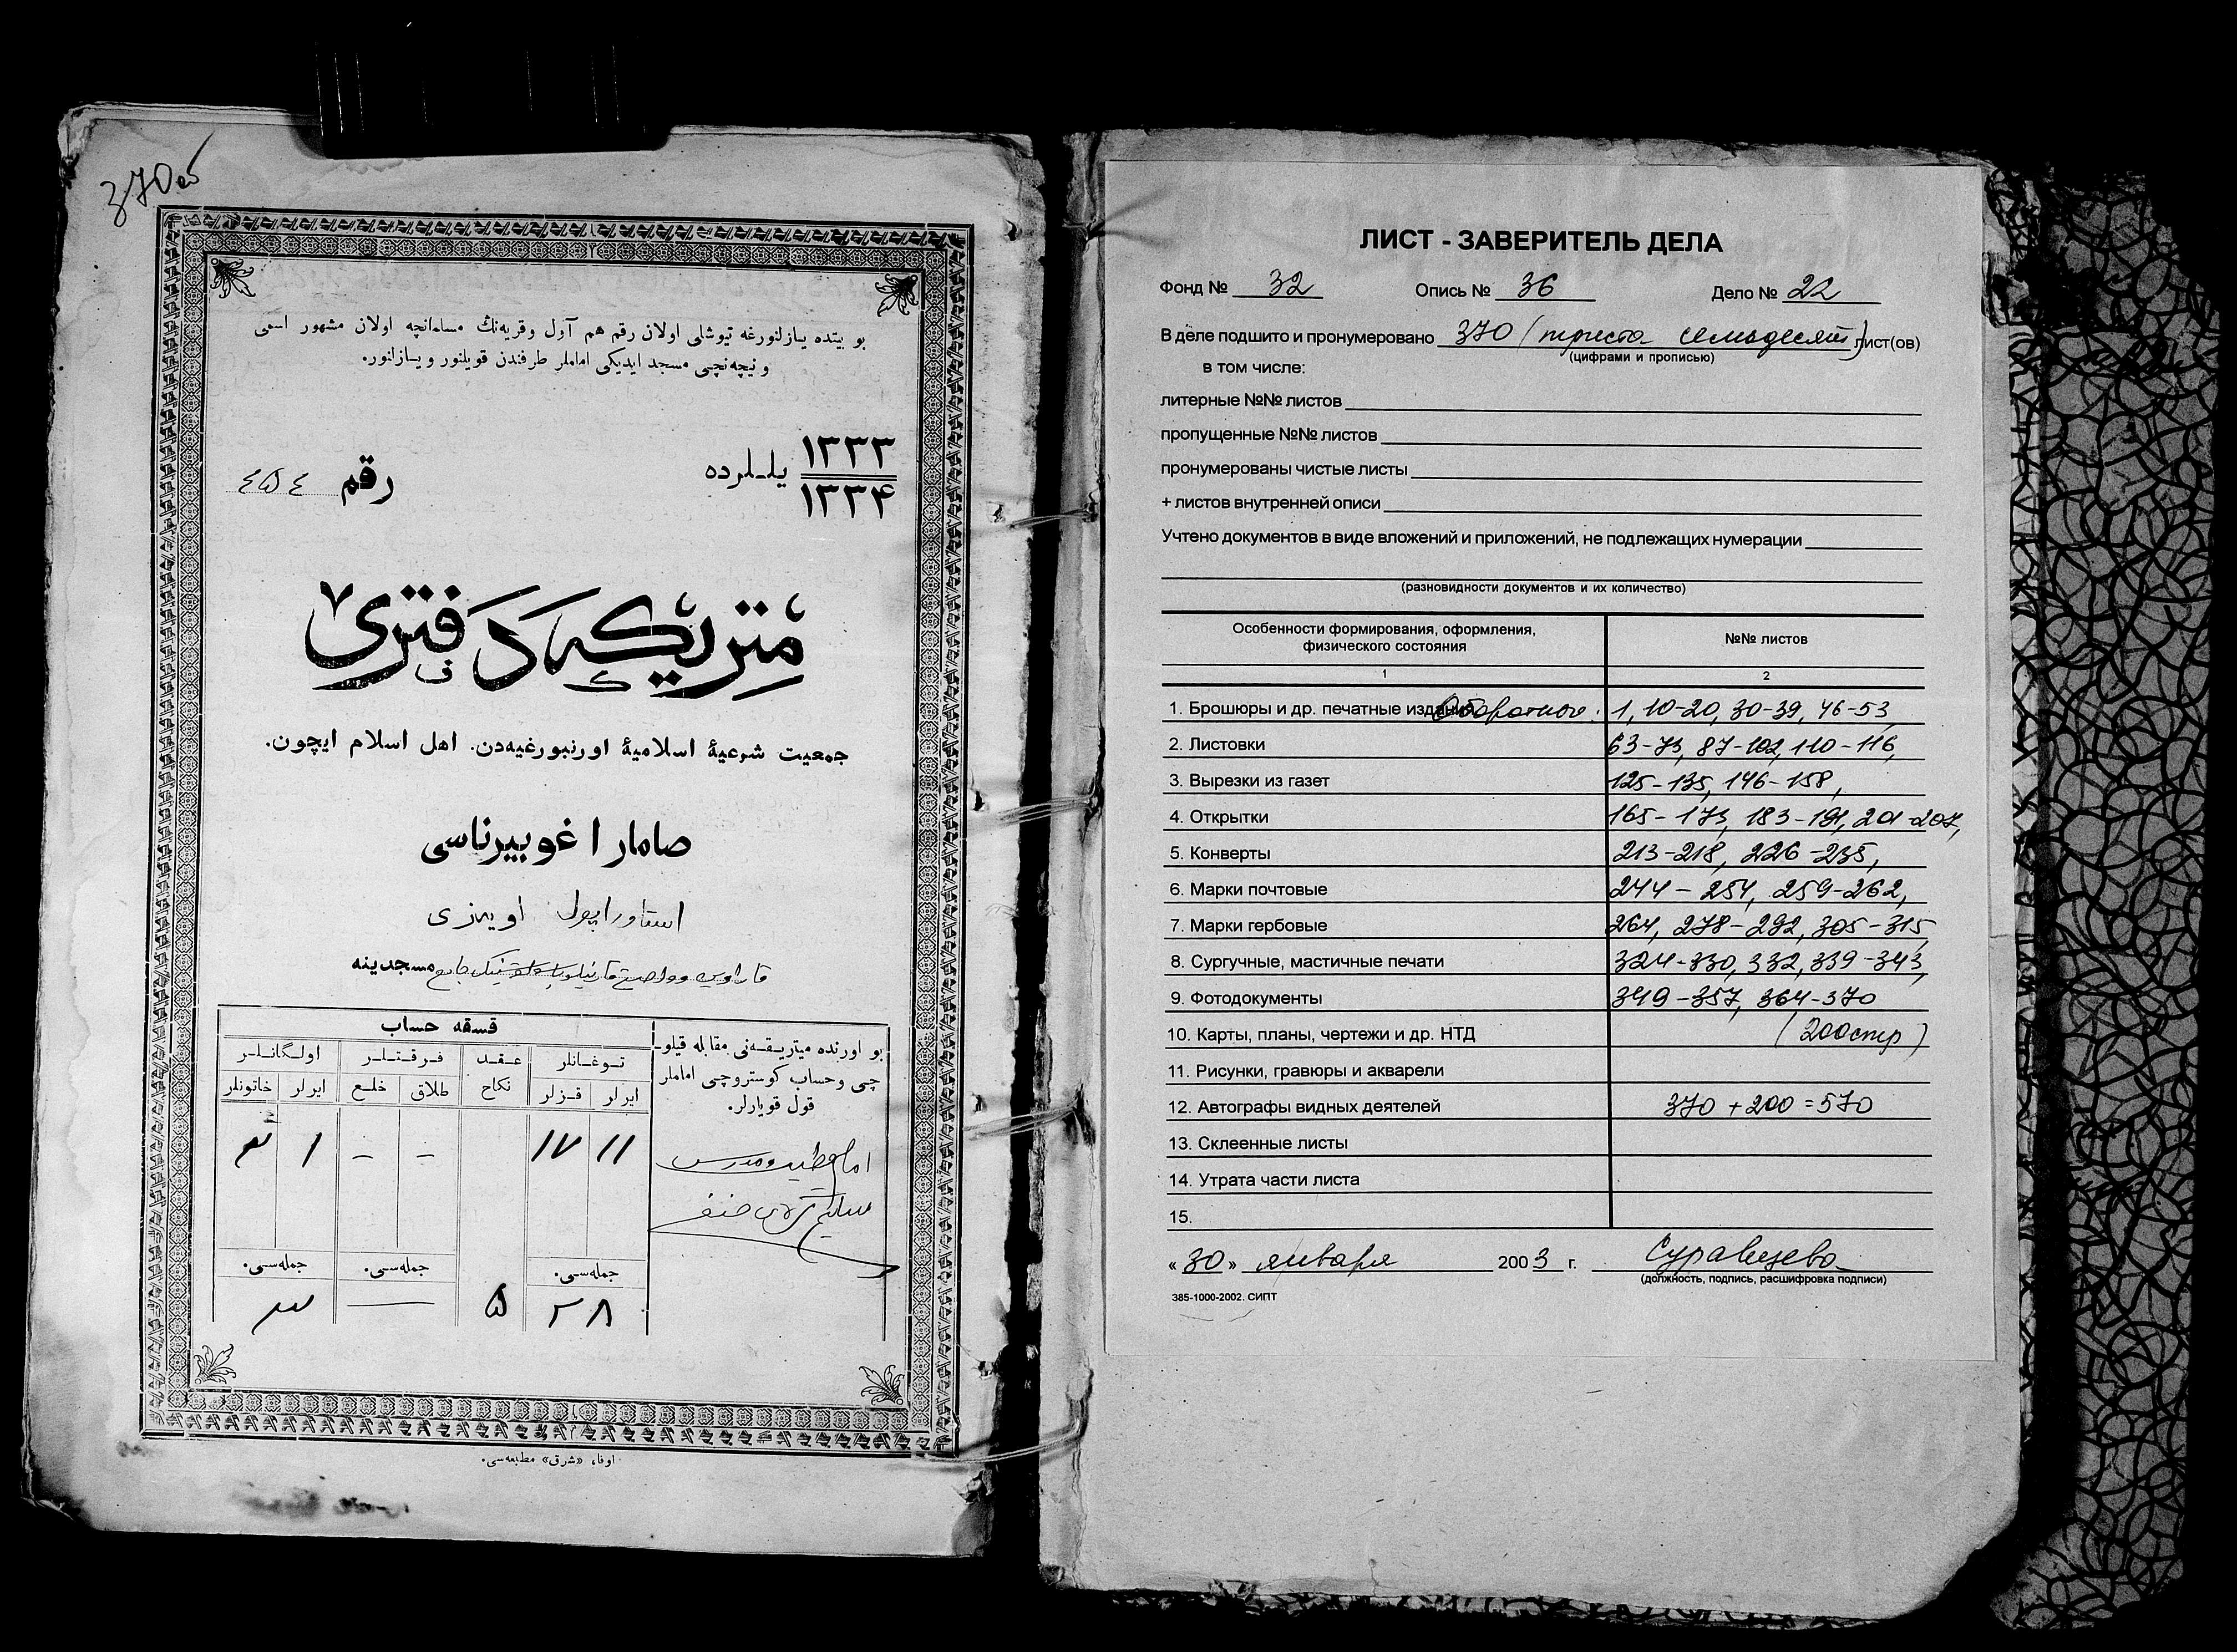 370об
بو بیتده یازلنورغه تیوشلی اولان رقم هم آول وقریه‌نڭ مسلمانچه اولان مشهور اسمی
و نیچه‌نچی مسجد ایدیکی اماملر طرفندن قویلنور و یازلنور.
۱۳۳۳
۱۳۳۴
یللرده
رقم ٤۵٤
متریكه دفتری
جمعیت شرعیهٔ اسلامیهٔ اورنبورغیه‌دن. اهل اسلام ایچون.
صامارا غوبیرناسی
استاوراپول اویەزی
جامع مسجدینه
بو اورنده میتریقه‌نی مقابله قیلو-
چی وحساب کوستروچی اماملر
قول قویارلر.
قسقه حساب
توغانلر
عقد نكاح
فرقتلر
اولگانلر
ایرلر
قزلر
طلاق
خلع
ایرلر
خاتونلر
۱۱
۱۷
-
-
۱
جمله‌سی.
جمله‌سی.
جمله‌سی.
۲۸
۵
—
اوفا، «شرق» مطبعه‌سی.
ЛИСТ - ЗАВЕРИТЕЛЬ ДЕЛА
Фонд № 32 Опись № 36 Дело № 22
В деле подшито и пронумеровано 370 (триста семьдесят) лист(ов)
(цифрами и прописью)
в том числе:
литерные №№ листов
пропущенные №№ листов
пронумерованы чистые листы
+ листов внутренней описи
Учтено документов в виде вложений и приложений, не подлежащих нумерации
(разновидности документов и их количество)
Особенности формирования, оформления,
физического состояния
№№ листов
1
2
1. Брошюры и др. печатные издания Оборотные: 1, 10-20, 30-39, 46-53,
2. Листовки 63-73, 87-102, 110-116,
3. Вырезки из газет 125-135, 146-158,
4. Открытки 165-173, 183-191, 201-207,
5. Конверты 213-218, 226-235,
6. Марки почтовые 244-254, 259-262,
7. Марки гербовые 264, 278-292, 305-315,
8. Сургучные, мастичные печати 324-330, 332, 339-343,
9. Фотодокументы 349-357, 364-370
10. Карты, планы, чертежи и др. НТД (200стр)
11. Рисунки, гравюры и акварели
12. Автографы видных деятелей 370 + 200 = 570
13. Склеенные листы
14. Утрата части листа
15.
« 30 » января 2003 г.
(должность, подпись, расшифровка подписи)
385-1000-2002. СИПТ